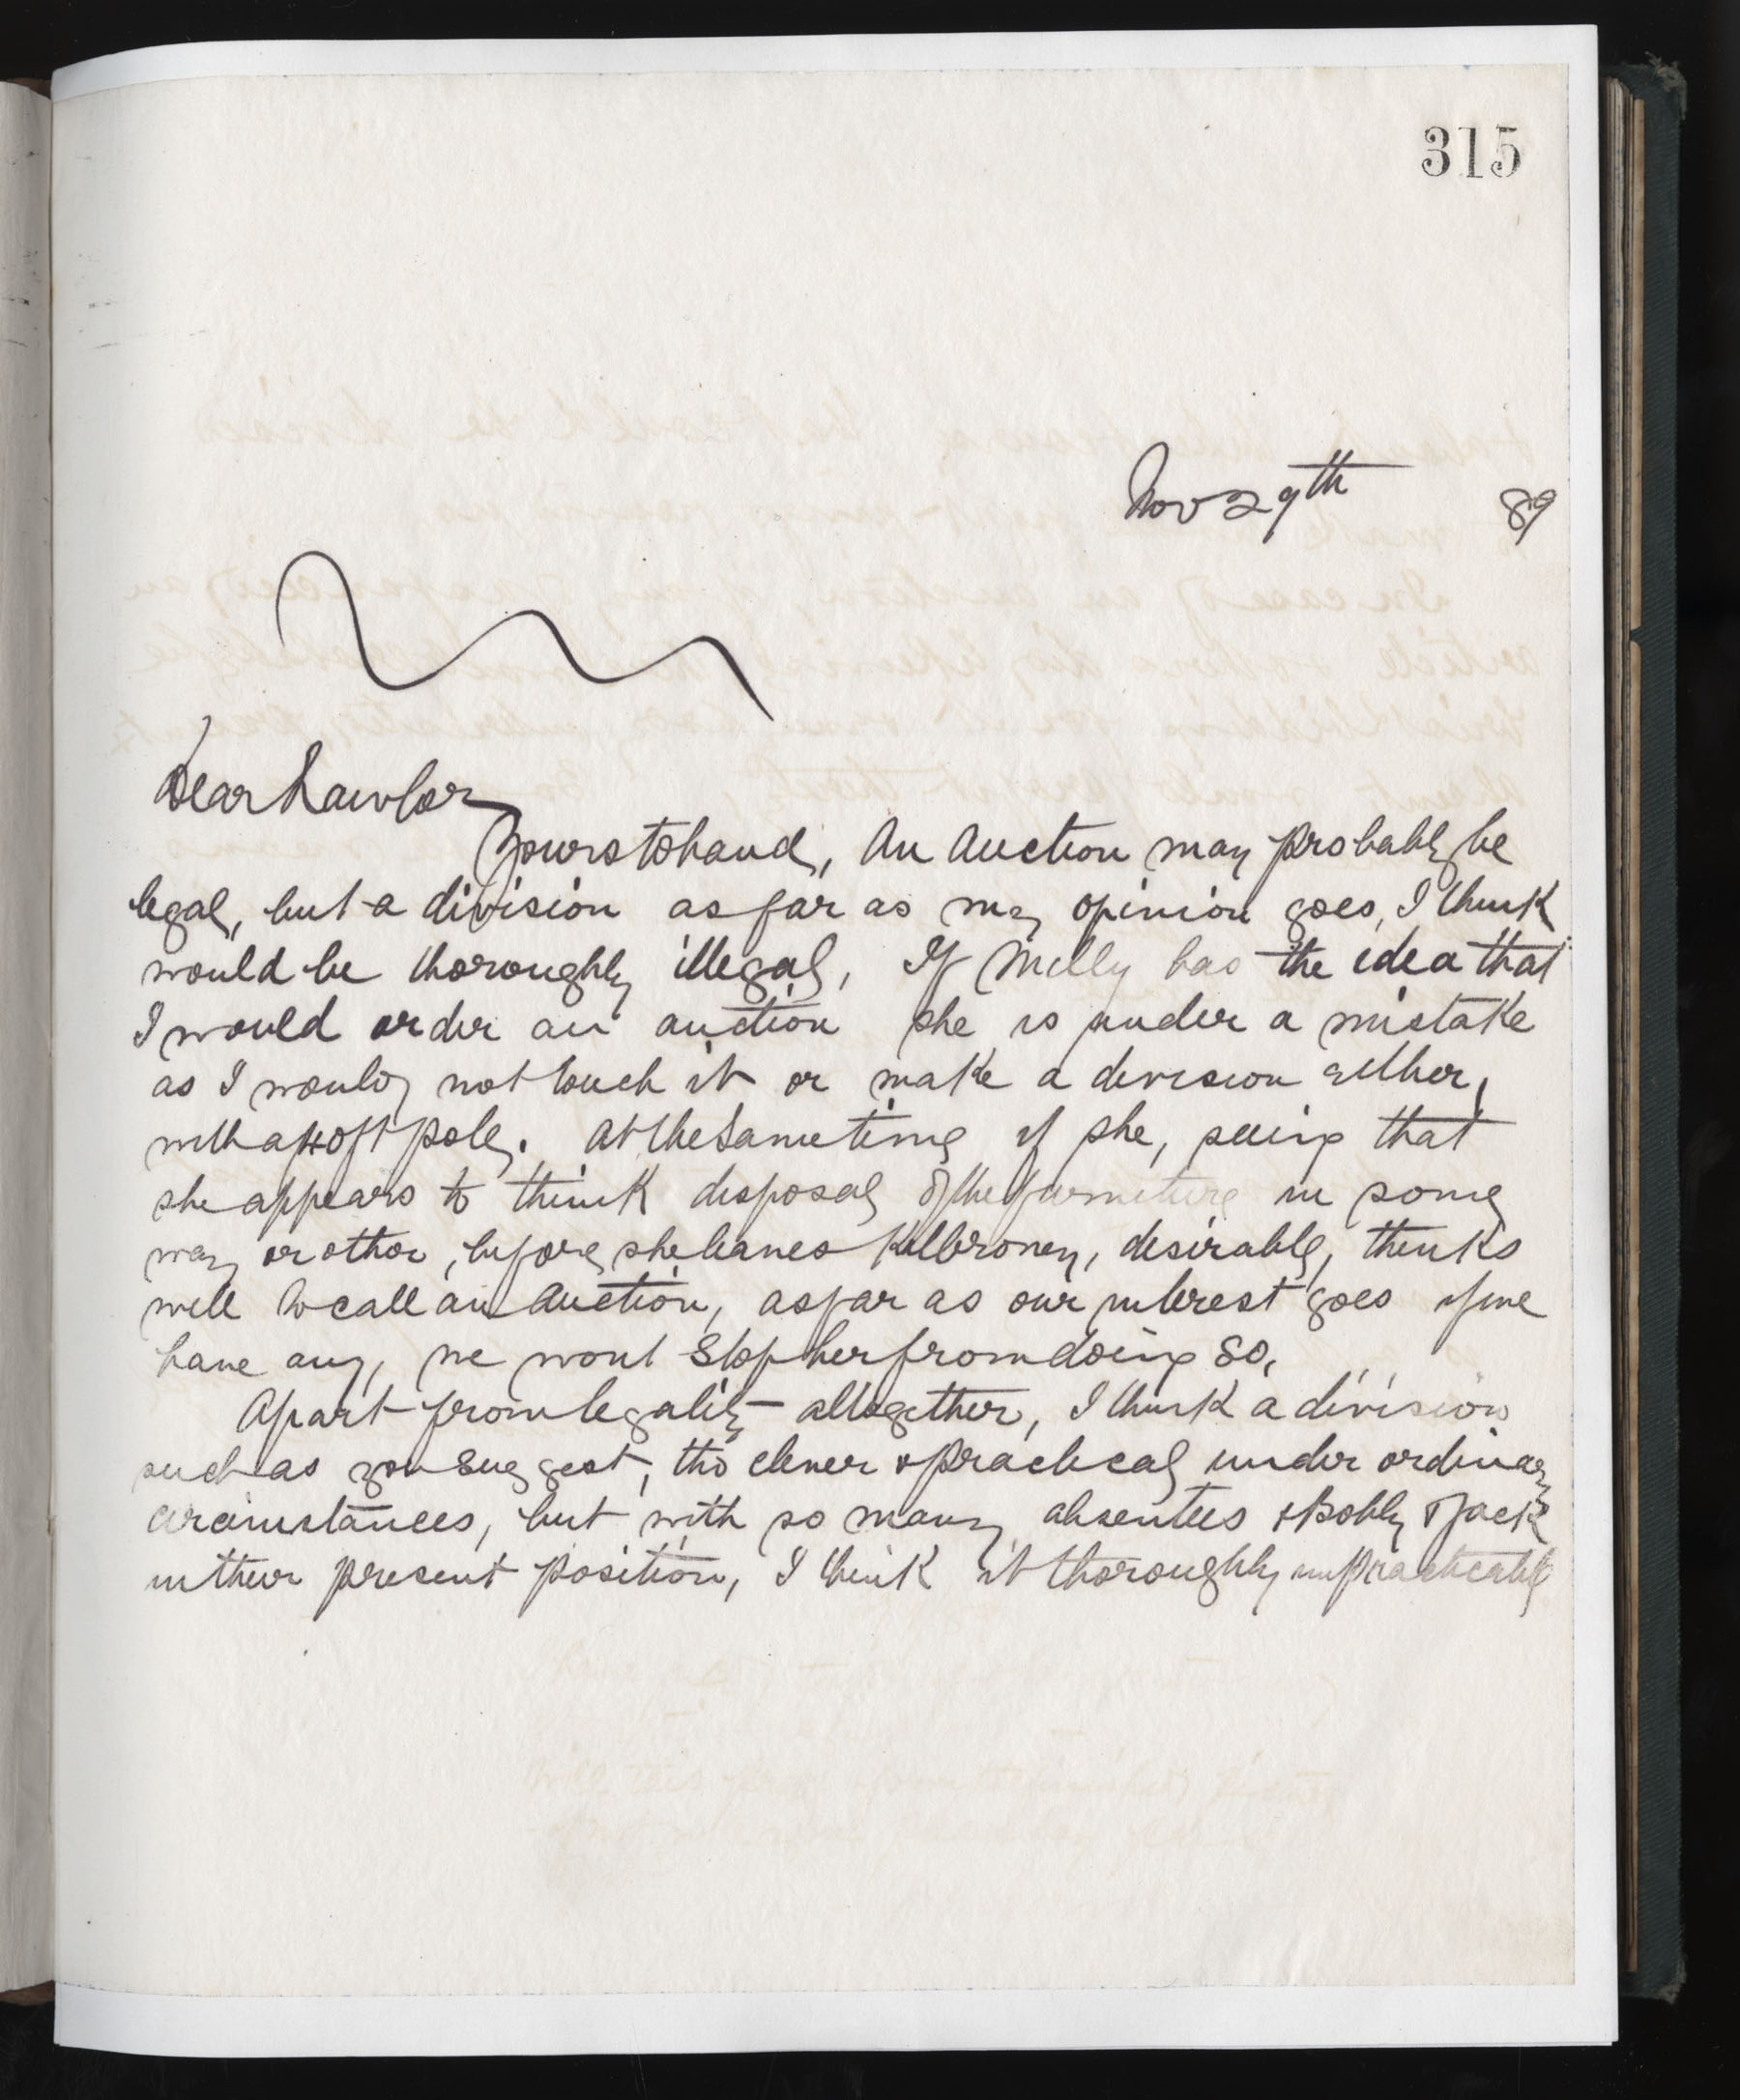 315
Nov 29th 89
Dear Lawlor
Yours to hand, An Auction may probably be
legal, but a division as far as my opinion goes, I think
would be thoroughly illegal, If Milly has the idea that
I would order an auction she is under a mistake
as I would not touch it or make a division either,
with a 40 ft pole. At the same time if she, seeing that
she appears to think disposal of the furniture in some
way or other, before she leaves Kilbroney, desirable, thinks
well to call an Auction, as far as our interest goes if we
have any, we wont stop her from doing so,
Apart from legality altogether, I think a division
such as you suggest, tho clever & practical under ordinary
circumstances, but with so many absentees & Bobby & Jack
in their present position, I think it thoroughly unpracticable